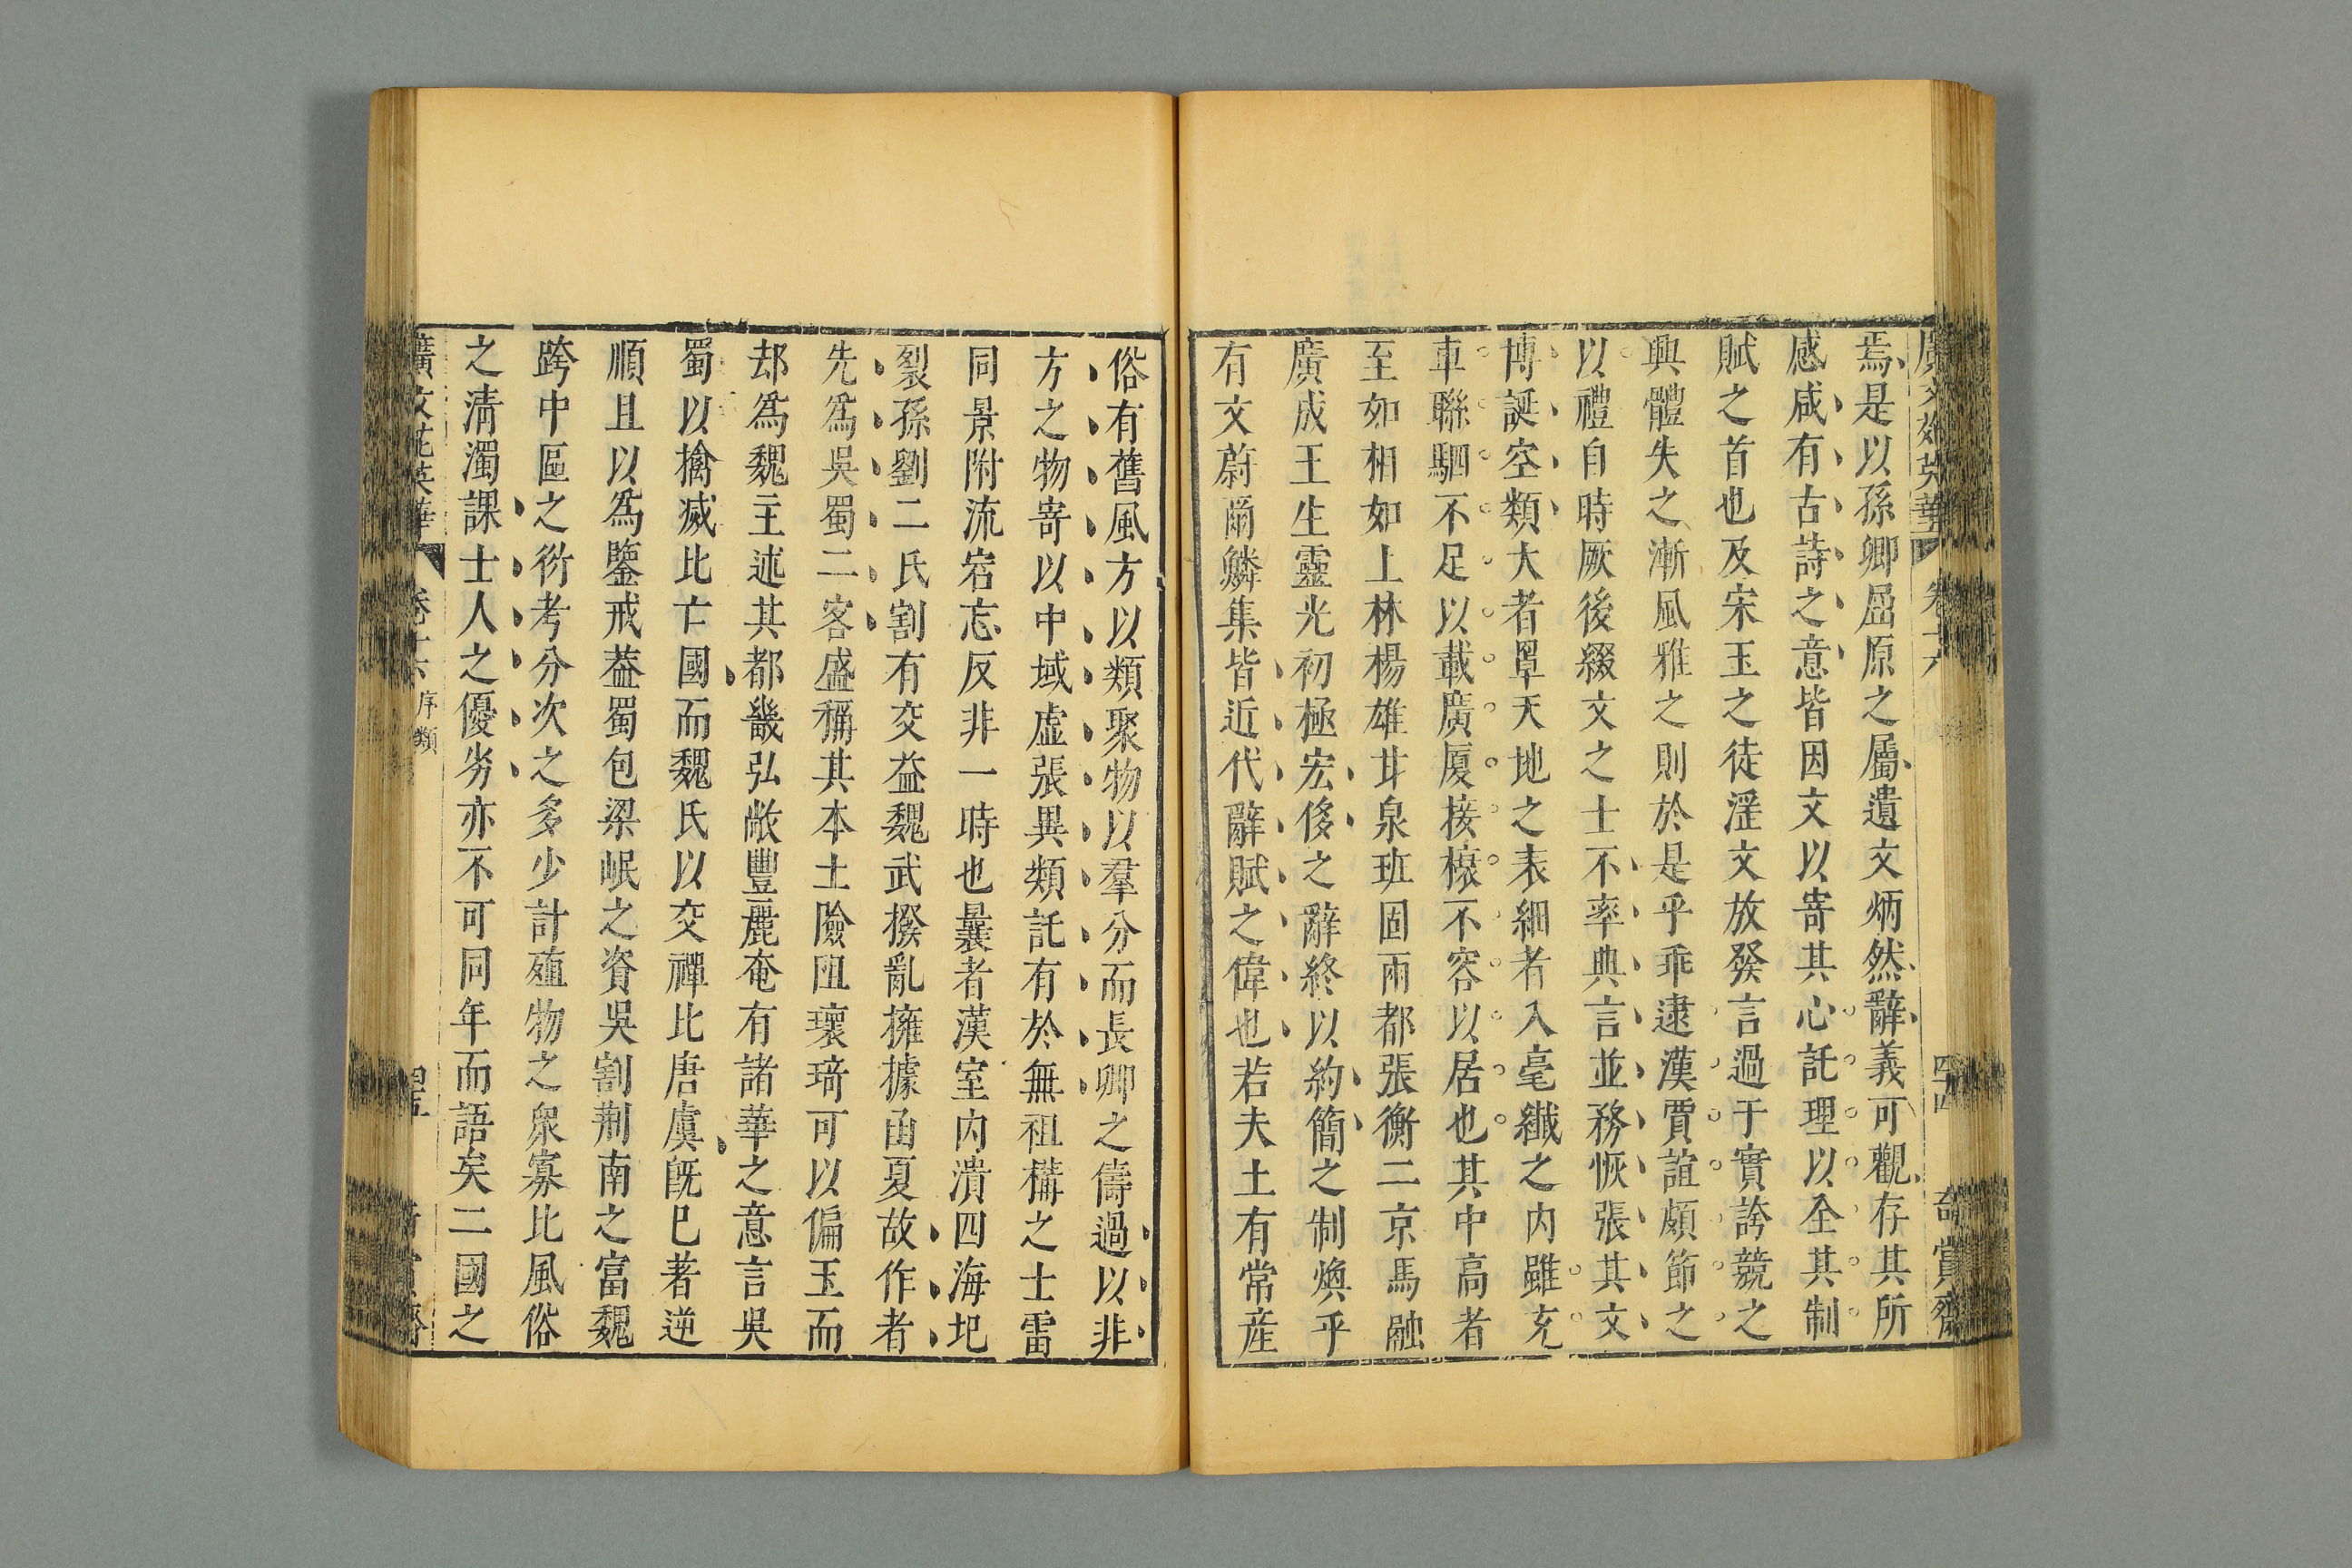 廣文苑英華 卷十六 四十四 奇賞齋
焉是以孫卿屈原之屬遺文炳然辭義可觀存其所
感咸有古詩之意皆因文以寄其心託理以全其制
賦之首也及宋玉之徒淫文放發言過于實誇競之
興體失之漸風雅之則於是乎乖逮漢賈誼頗節之
以禮自時厥後綴文之士不率典言並務恢張其文
博誕空類大者罩天地之表細者入毫纖之內雖充
車聯駟不足以載廣厦接榱不容以居也其中高者
至如相如上林楊雄甘泉班固兩都張衡二京馬融
廣成王生靈光初極宏侈之辭終以約簡之制煥乎
有文蔚爾鱗集皆近代辭賦之偉也若夫土有常産
俗有舊風方以類聚物以羣分而長卿之儔過以非
方之物寄以中域虛張異類託有於無祖構之士雷
同景附流宕忘反非一時也曩者漢室內潰四海圯
裂孫劉二氏割有交益魏武撥亂擁據函夏故作者
先爲吳蜀二客盛稱其本土險阻瓌琦可以偏王而
却爲魏主述其都畿弘敞豐麗奄有諸華之意言吳
蜀以擒滅比亡國而魏氏以交禪比唐虞既已著逆
順且以爲鑒戒葢蜀包梁岷之資吳割荆南之富魏
跨中區之衍考分次之多少計殖物之衆寡比風俗
之清濁課士人之優劣亦不可同年而語矣二國之
廣文苑英華 卷十六 序類 四十五 奇賞齋